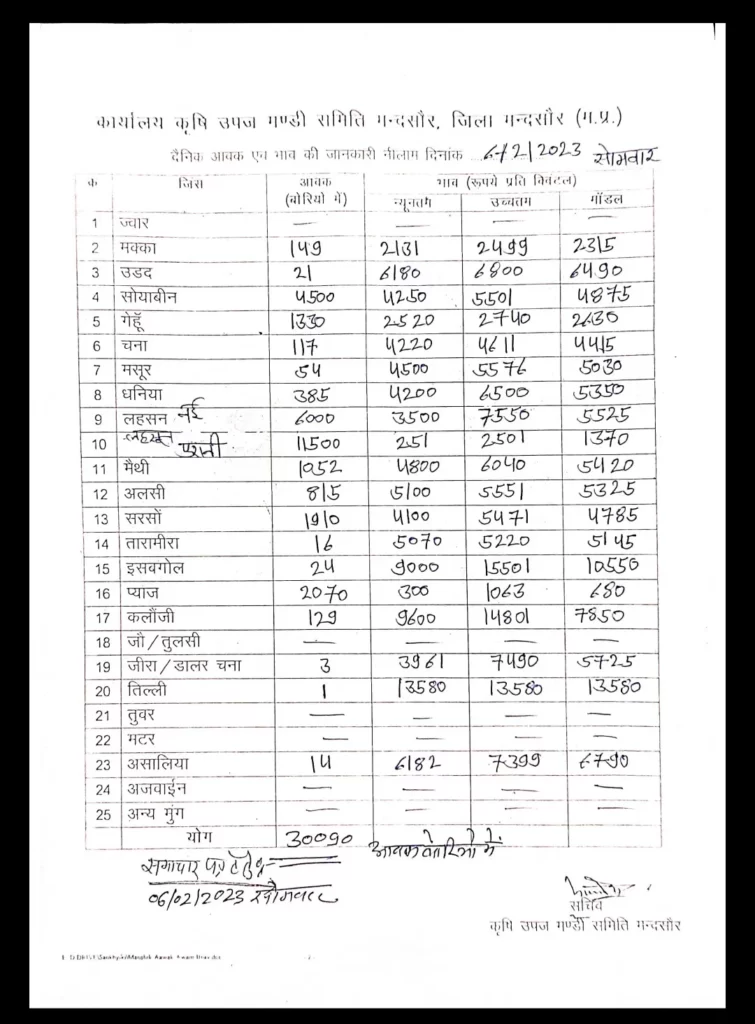 कार्यालय कृषि उपज मण्डी समिति मन्दसौर, जिला मन्दसौर (म.प्र.)
दैनिक आवक एवं भाव की जानकारी नीलाम दिनांक 6/2/2023 सोमवार
क जिंस आवक (बोरियो में) भाव (रूपये प्रति क्विंटल)
न्यूनतम उच्चतम मॉडल
1 ज्वार — — — —
2 मक्का 149 2131 2499 2315
3 उडद 21 6180 6800 6490
4 सोयाबीन 4500 4250 5501 4875
5 गेहूँ 1330 2520 2740 2630
6 चना 117 4220 4611 4415
7 मसूर 54 4500 5576 5030
8 धनिया 385 4200 6500 5350
9 लहसन नई 6000 3500 7550 5525
10 लहसन पुरानी 11500 251 2501 1370
11 मैथी 1052 4800 6040 5420
12 अलसी 815 5100 5551 5325
13 सरसों 1910 4100 5471 4785
14 तारामीरा 16 5070 5220 5145
15 इसबगोल 24 9000 15501 10550
16 प्याज 2070 300 1063 680
17 कलौंजी 129 9600 14801 7850
18 जौ/तुलसी — — — —
19 जीरा/डालर चना 3 3961 7490 5725
20 तिल्ली 1 13580 13580 13580
21 तुवर — — — —
22 मटर — — — —
23 असालिया 14 6182 7399 6790
24 अजवाईन — — — —
25 अन्य मुंग — — — —
योग 30090 आवक बोरिओ में.
समाचार पत्र हेतु
06/02/2023 सोमवार
सचिव
कृषि उपज मण्डी समिति मन्दसौर